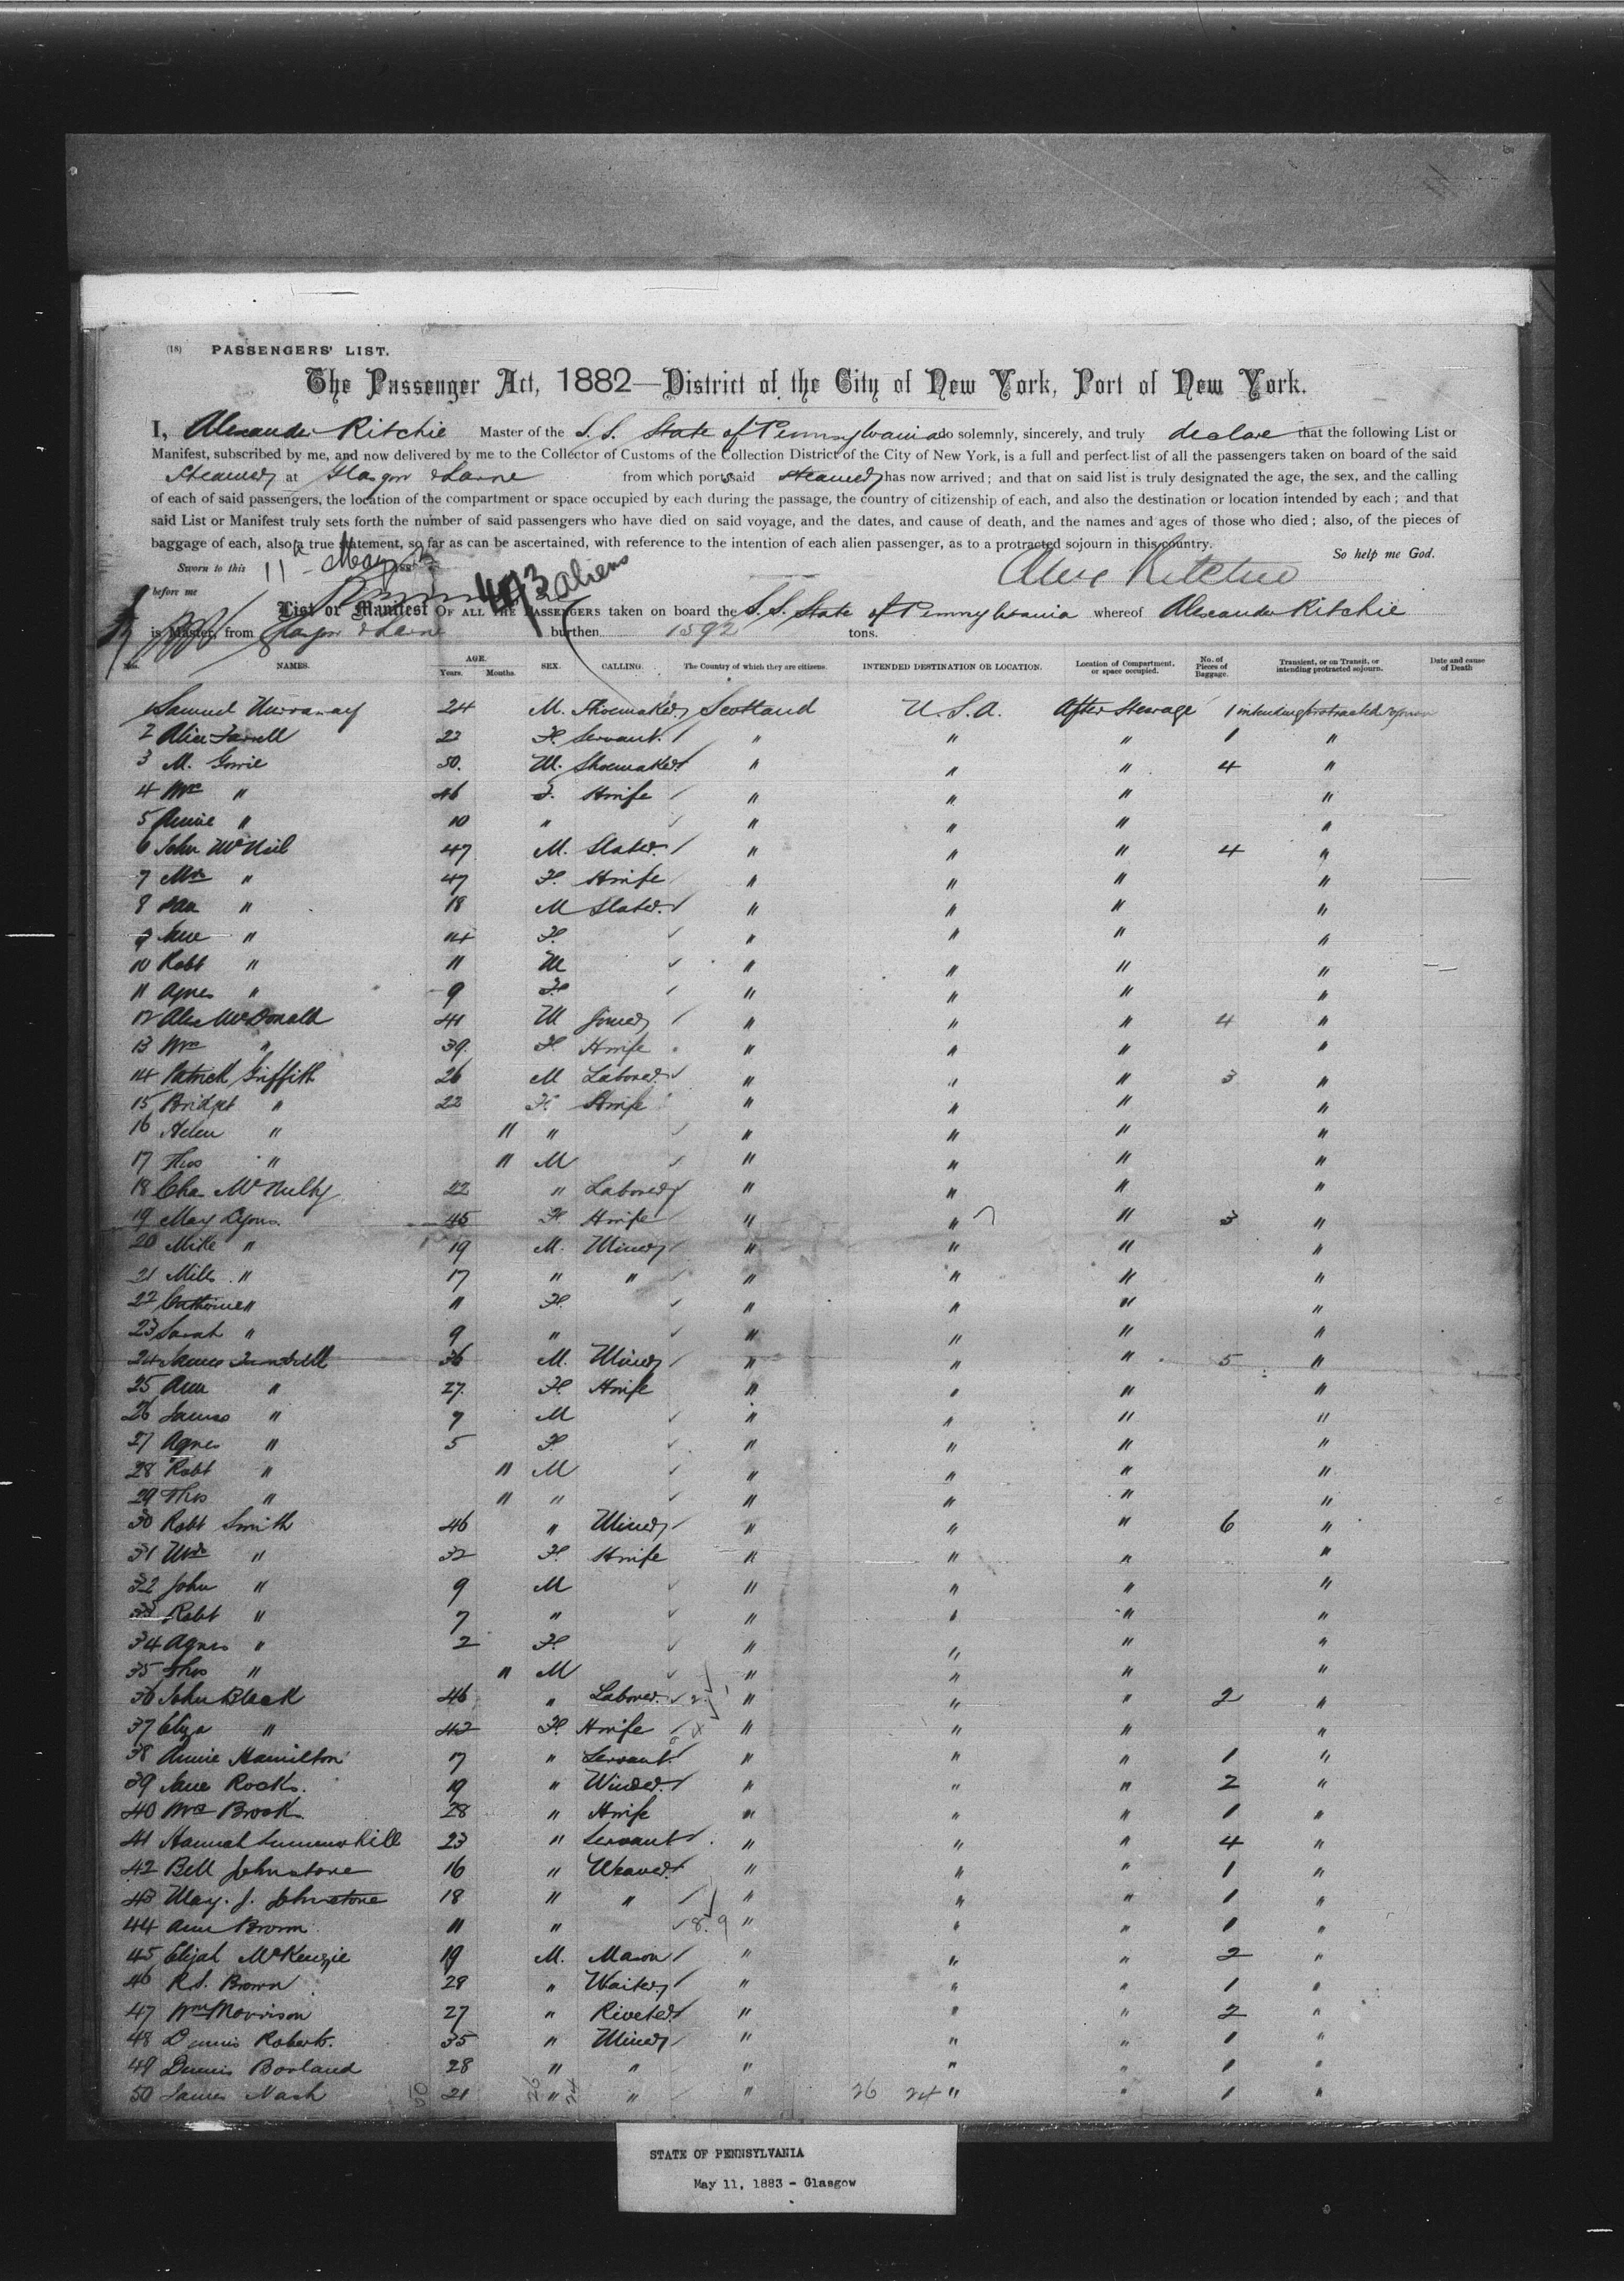 (18) PASSENGERS' LIST.
The Passenger Act, 1882—District of the City of New York, Port of New York.
I, Alexander Ritchie Master of the S.S. State of Pennsylvania do solemnly, sincerely, and truly declare that the following List or
Manifest, subscribed by me, and now delivered by me to the Collector of Customs of the Collection District of the City of New York, is a full and perfect list of all the passengers taken on board of the said
Steamer at Glasgow & Larne from which ports said steamer has now arrived; and that on said list is truly designated the age, the sex, and the calling
of each of said passengers, the location of the compartment or space occupied by each during the passage, the country of citizenship of each, and also the destination or location intended by each; and that
said List or Manifest truly sets forth the number of said passengers who have died on said voyage, and the dates, and cause of death, and the names and ages of those who died; also, of the pieces of
baggage of each, also a true statement, so far as can be ascertained, with reference to the intention of each alien passenger, as to a protracted sojourn in this country. So help me God.
Sworn to this 11 May 188 Alex Ritchie
before me 493 aliens
List or Manifest OF ALL THE PASSENGERS taken on board the S.S. State of Pennsylvania whereof Alexander Ritchie
is Master, from Glasgow & Larne burthen 1592 tons.
Nos. NAMES. AGE. Years. Months. SEX. CALLING. The Country of which they are citizens. INTENDED DESTINATION OR LOCATION. Location of Compartment, or space occupied. No. of Pieces of Baggage. Transient, or on Transit, or intending protracted sojourn. Date and cause of Death
1 Samuel 24 M. Shoemaker Scotland U.S.A. After Steerage 1 intending protracted sojourn
2 Alice Farrell 23 F. Servant " " " 1 "
3 M. Gowie 50. M. Shoemaker " " " 4 "
4 Mrs " 46 F. Hwife " " " "
5 Annie " 10 " " " " "
6 John McNeil 47 M. Slater " " " 4 "
7 Mrs " 47 F. Hwife " " " "
8 " 18 M Slater " " " "
9 Jane " 14 F. " " " "
10 Robt " 11 M " " " "
11 Agnes " 9 F " " " "
12 Alex McDonald 41 M Joiner " " " 4 "
13 Mrs " 39. F. Hwife " " " "
14 Patrick Griffith 26 M Laborer " " " 3 "
15 Bridget " 22 F. Hwife " " " "
16 Helen " " " " " " "
17 Thos " " M " " " "
18 Cha McNulty 22 " Laborer " " " "
19 May Lyons. 45 F. Hwife " " " 3 "
20 Mike " 19 M. Miner " " " "
21 Miles " 17 " " " " " "
22 Catherine " 11 F. " " " "
23 Sarah " 9 " " " " "
24 James 36 M. Miner " " " 5 "
25 Ann " 27. F. Hwife " " " "
26 James " 7 M " " " "
27 Agnes " 5 F. " " " "
28 Robt " " M " " " "
29 Thos " " " " " " "
30 Robt Smith 46 " Miner " " " 6 "
31 Mrs " 32 F. Hwife " " " "
32 John " 9 M " " " "
33 Robt " 7 " " " " "
34 Agnes " 2 F. " " " "
35 Thos " " M " " " "
36 John Black 46 " Laborer " " " 2 "
37 Eliza " 42 F. Hwife " " " "
38 Annie Hamilton 17 " Servant " " " 1 "
39 Jane Rocks. 19 " Winder " " " 2 "
40 Mrs Brock. 28 " Hwife " " " 1 "
41 Hannah Summerhill 23 " Servant " " " 4 "
42 Bell Johnstone 16 " Weaver " " " 1 "
43 May. J. Johnstone 18 " " " " " 1 "
44 Ann Brown 11 " 8.9 " " " 1 "
45 Elijah McKenzie 19 M. Mason " " " 2 "
46 R.S. Brown 28 " Waiter " " " 1 "
47 Wm Morrison 27 " Riveter " " " 2 "
48 Dennis Roberts. 35 " Miner " " " 1 "
49 Dennis Borland 28 " " " " " 1 "
50 James Nash 50 21 26 " 24 " " 26 24 " " 1 "
STATE OF PENNSYLVANIA
May 11, 1883 - Glasgow